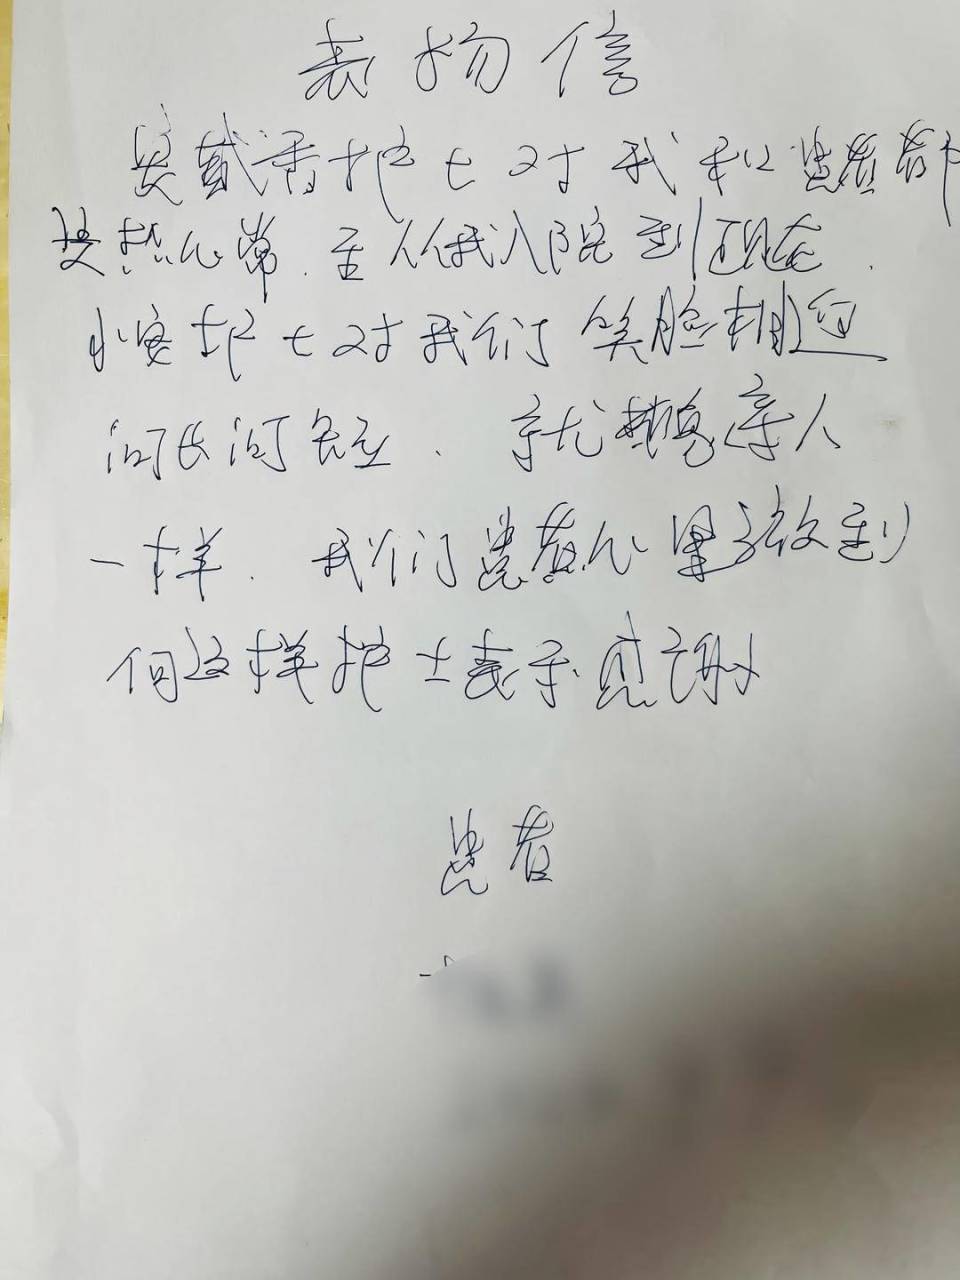 表扬信
护士对我和患者都
热心常. 至从我入院到现在.
小安护士对我们笑脸相迎
问长问短. 就像亲人
一样. 我们患者心里
向这样护士表示感谢
患者